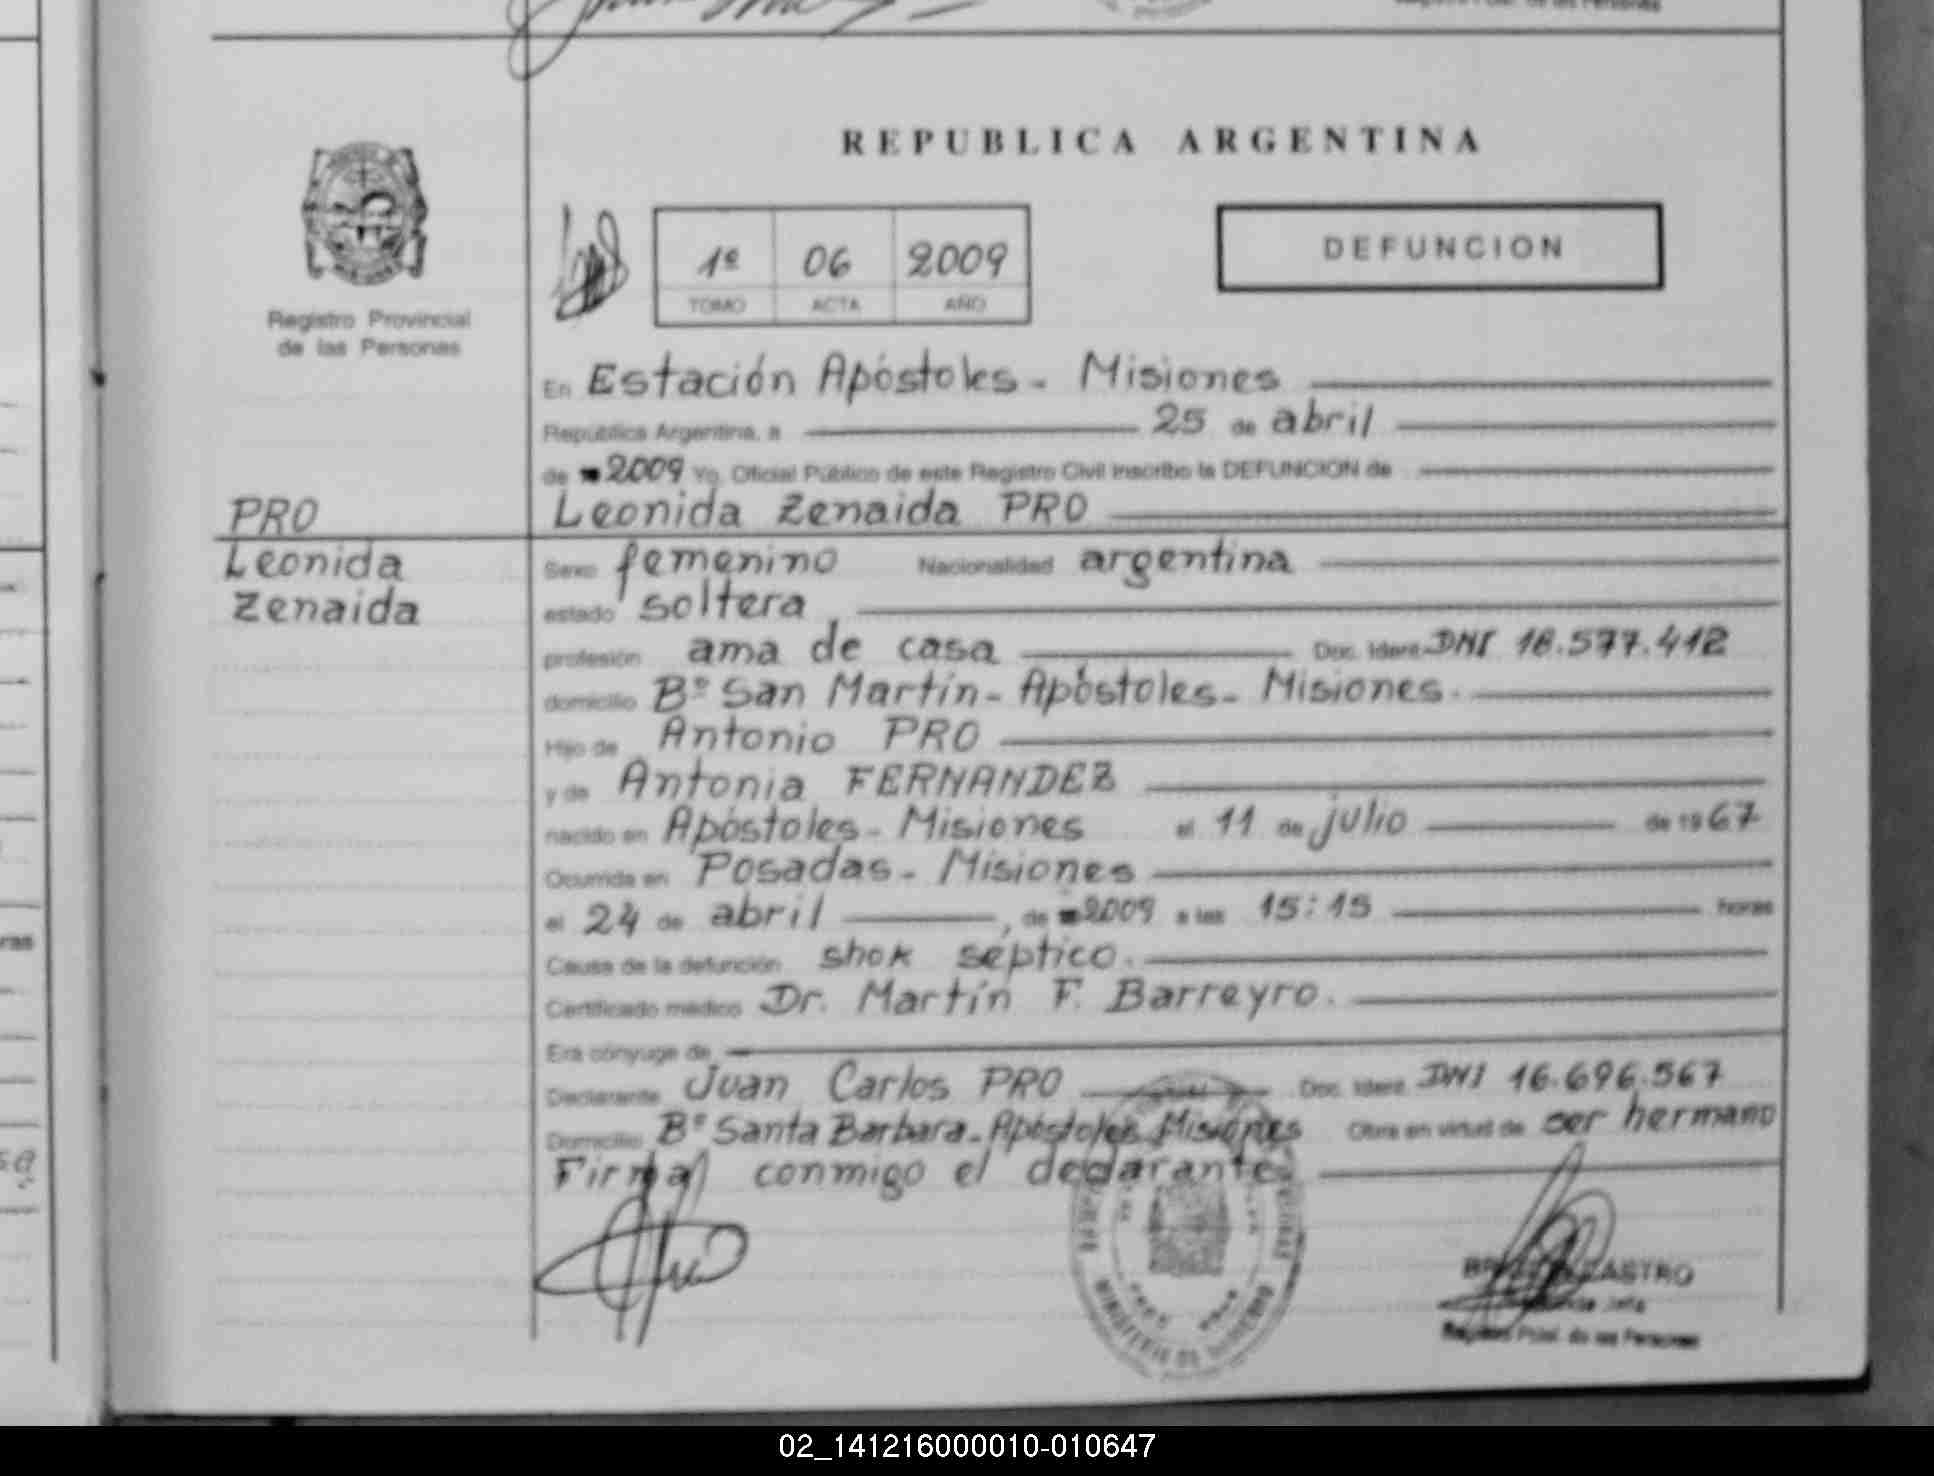 REPUBLICA ARGENTINA
Registro Provincial
de las Personas
1º 06 2009
TOMO ACTA AÑO
DEFUNCION
En Estación Apóstoles - Misiones
República Argentina, a 25 de abril
de 2009 Yo, Oficial Público de este Registro Civil inscribo la DEFUNCION de
PRO
Leonida Zenaida PRO
Leonida
Zenaida
Sexo femenino Nacionalidad argentina
estado soltera
profesión ama de casa Doc. Ident. DNI 18.577.412
domicilio Bº San Martín - Apóstoles - Misiones.
Hijo de Antonio PRO
y de Antonia FERNANDEZ
nacido en Apóstoles - Misiones el 11 de julio de 1967
Ocurrida en Posadas - Misiones
el 24 de abril, de 2009 a las 15:15 horas
Causa de la defunción shok séptico.
Certificado médico Dr. Martín F. Barreyro.
Era cónyuge de
Declarante Juan Carlos PRO Doc. Ident. DNI 16.696.567
Domicilio Bº Santa Barbara - Apóstoles Misiones Obra en virtud de ser hermano
Firma conmigo el declarante
MINISTERIO DE GOBIERNO
CASTRO
Registro Pcial. de las Personas
02_141216000010-010647